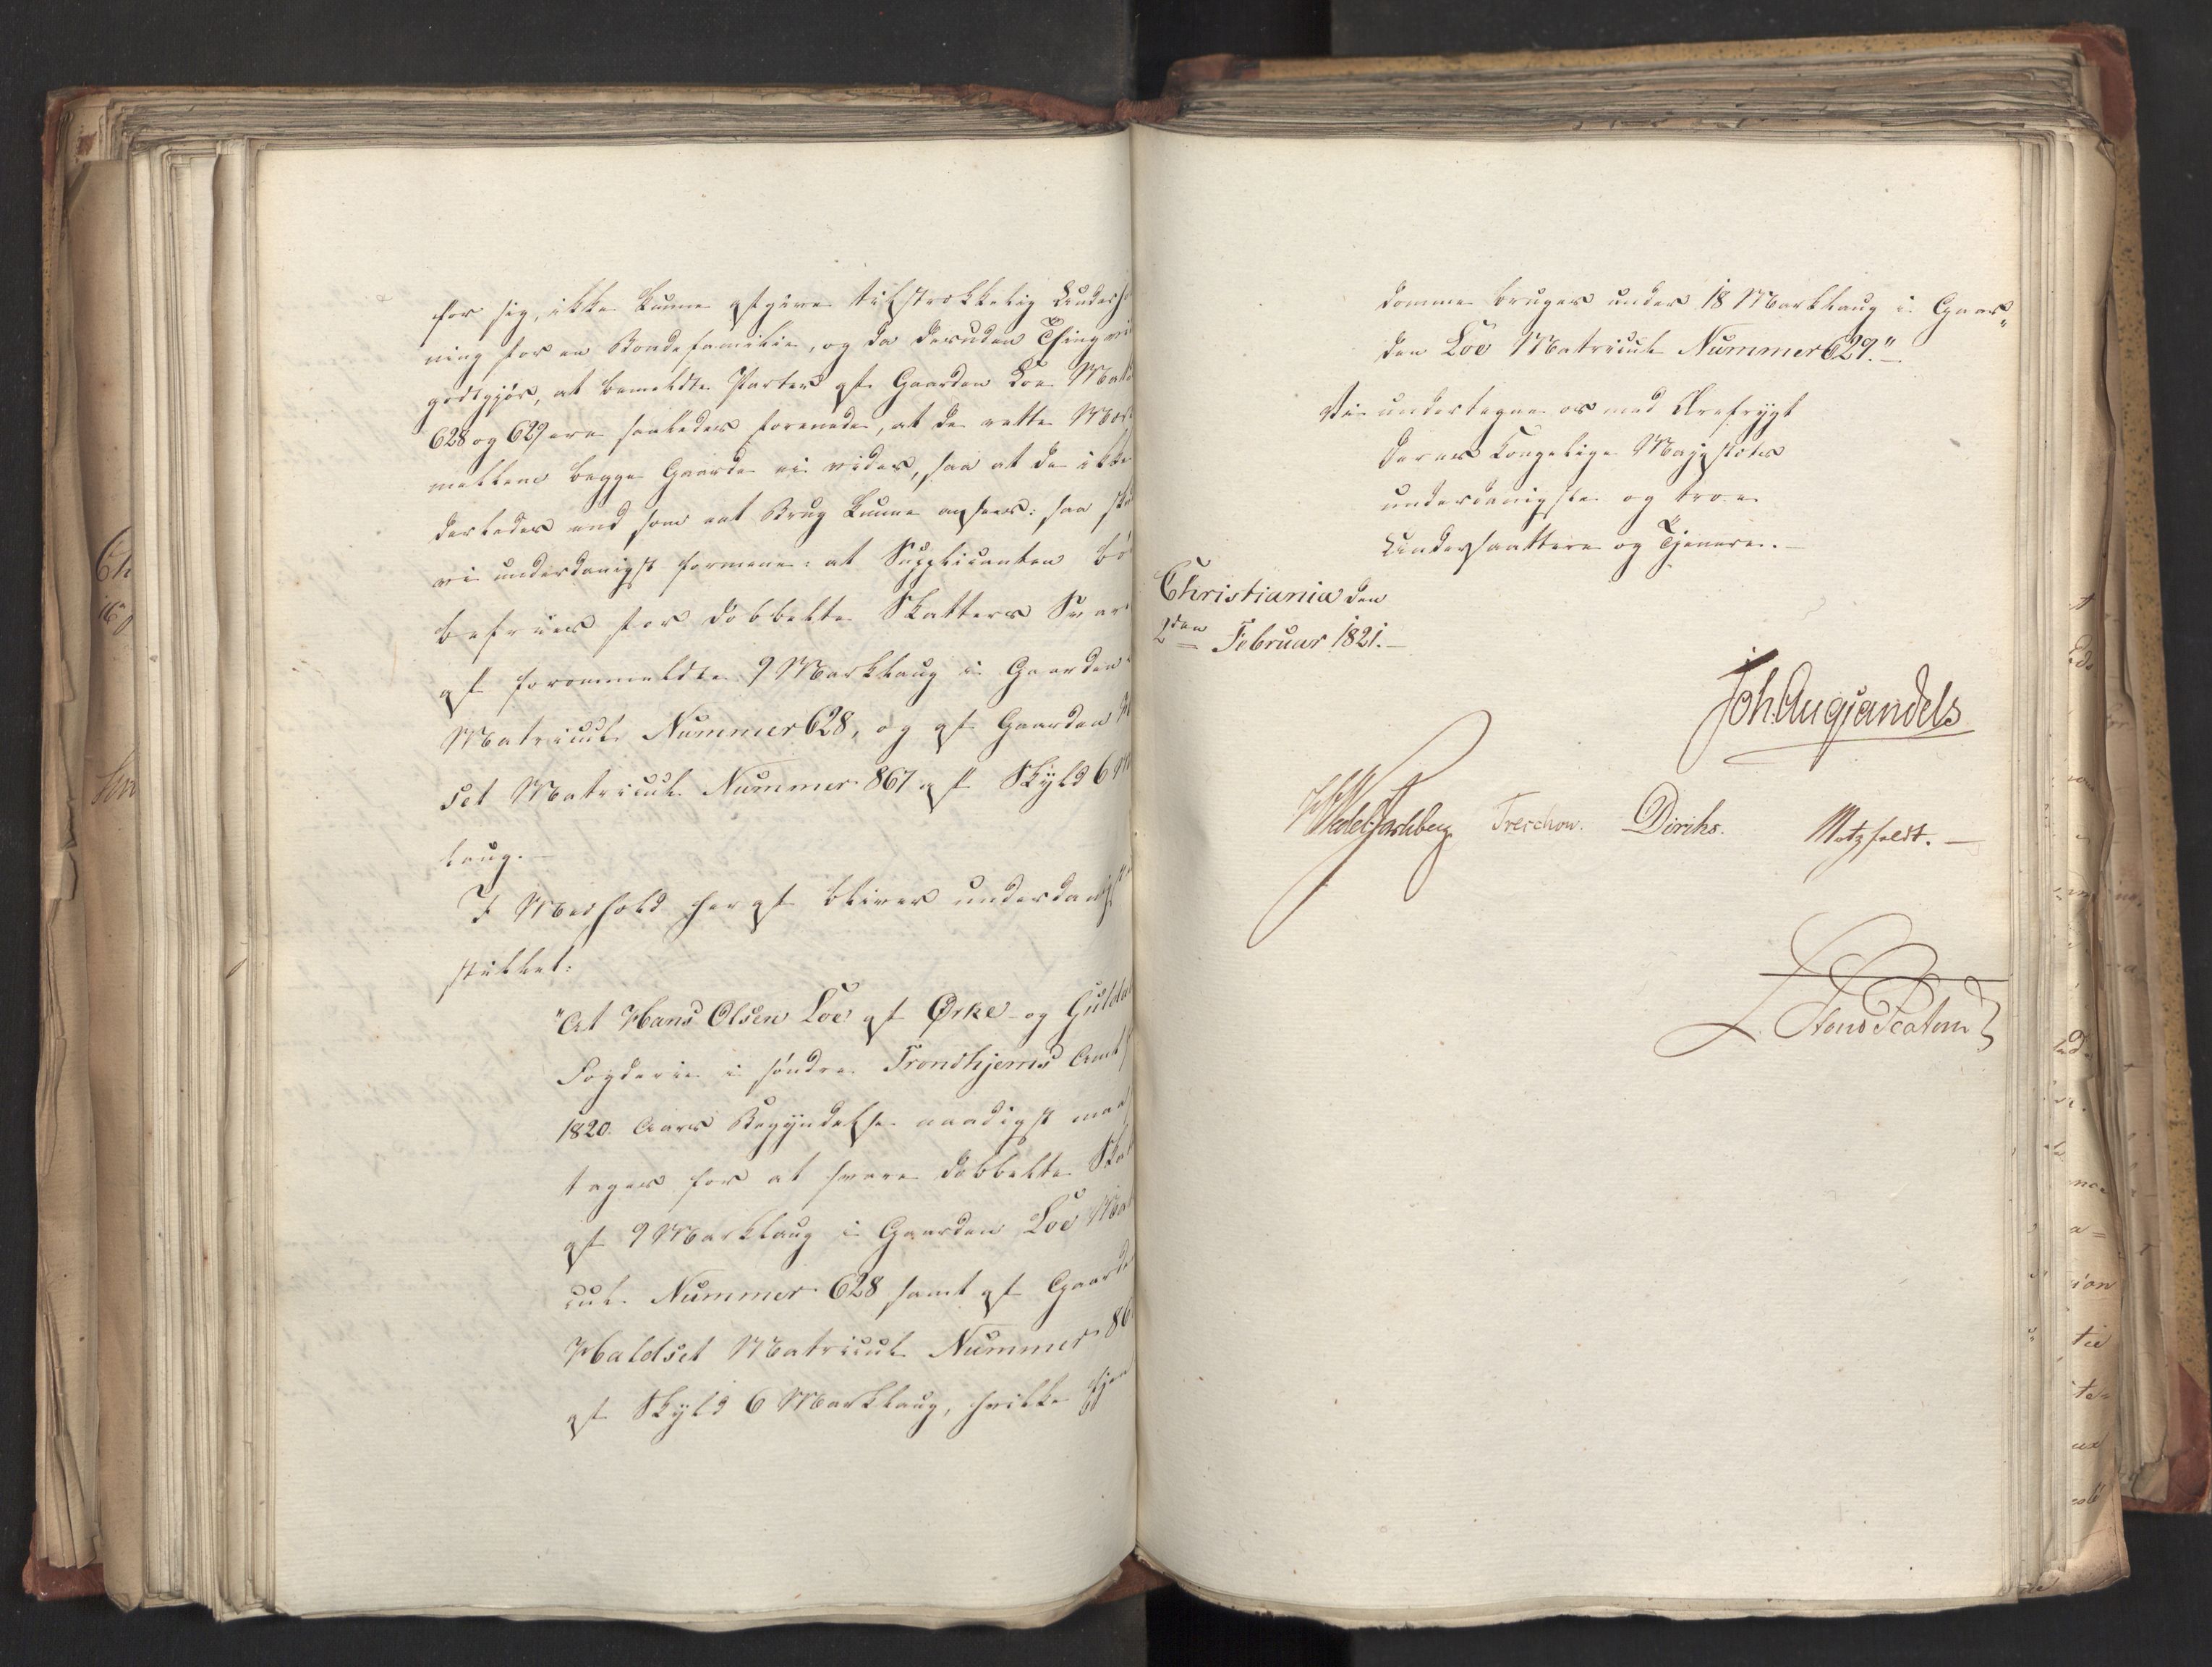 for sig, ikke kunne afgive tilstrækkelig Underho
ning for en Bondefamilie, og da desuden Thingvi
godtgjør, at bemeldte Parter af Gaarden Loe Mat
628 og 629 ere saaledes forenede, at de rette Mær
mellem begge Gaarde ei vides, saa at de ikke
derledes end som eet Brug kunne ansees: saa sk
vi underdanigst formene: at Supplicanten bø
befries for dobbelte Skatters Svar
af forommeldte 9 Marklaug i Gaarden
Matricul Nummer 628, og af Gaarden H
set Matricul Nummer 867 af Skyld 6 M
laug.—
I Medhold heraf bliver underdanigst
stillet:
"At Hans Olsen Loe af Ørke- og Guldal
Fogderie i søndre Trondhjems Amt f
1820 Aars Begyndelse naadigst maa
tages for at svare dobbelte Skat
af 9 Marklaug i Gaarden Loe Mat
cul Nummer 628 samt af Gaarde
Haldset Matricul Nummer 86
af Skyld 6 Marklaug, hvilke Ejen
domme bruges under 18 Marklaug i Gaar„
den Loe Matricul Nummer 629."—
Vi undertegne os med Ærefrygt
Deres Kongelige Majestæts
underdanigste og troe
Undersaattere og Tjenere.—
Christiania den
2den Februar 1821.—
Joh. Aug Sandels
HWedel Jarlsberg Treschow. Diriks. Motzfeldt.—